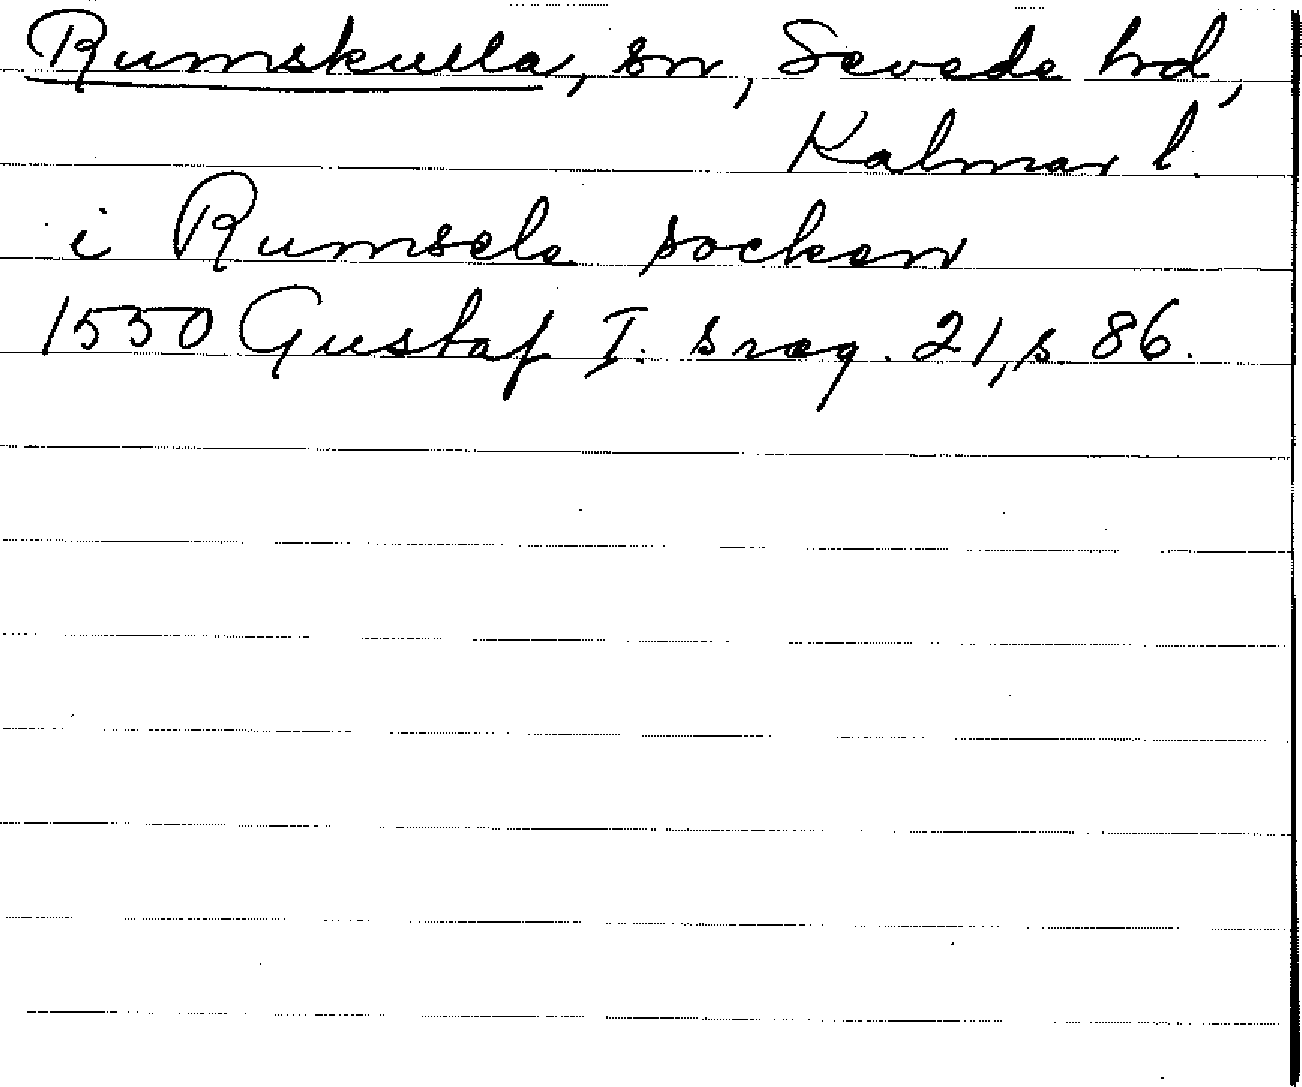 Rumskulla, sn, Sevede hd,
Kalmar l.
i Rumsele socken
1550 Gustaf I:s reg. 21, s 86.